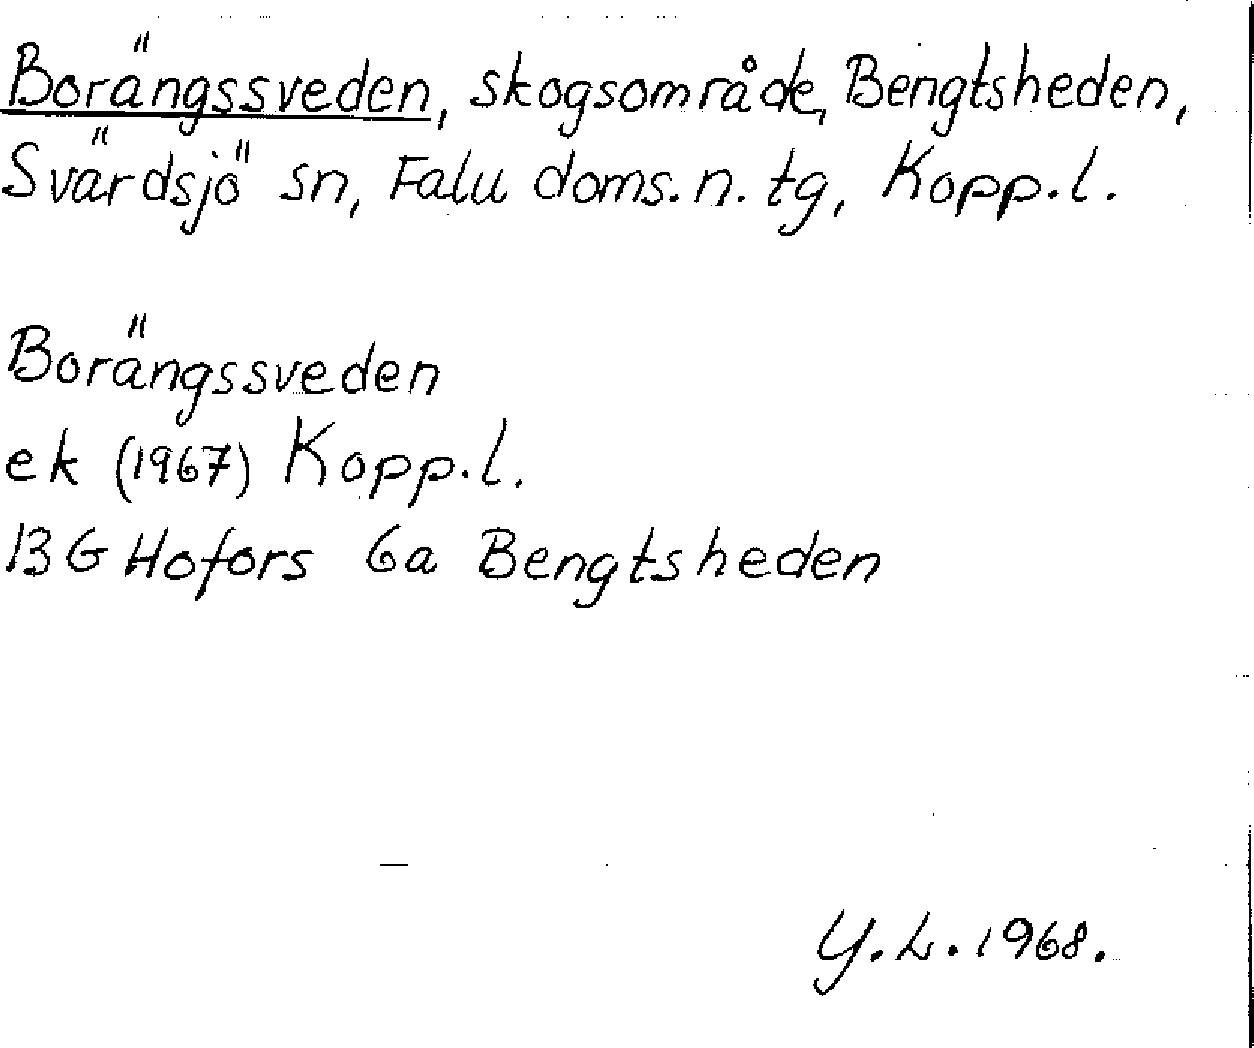 Borängssveden, skogsområde, Bengtsheden,
Svärdsjö sn, Falu doms. n. tg, Kopp. l.
Borängssveden
ek (1967) Kopp. l.
13 G Hofors 6a Bengtsheden
Y. L. 1968.